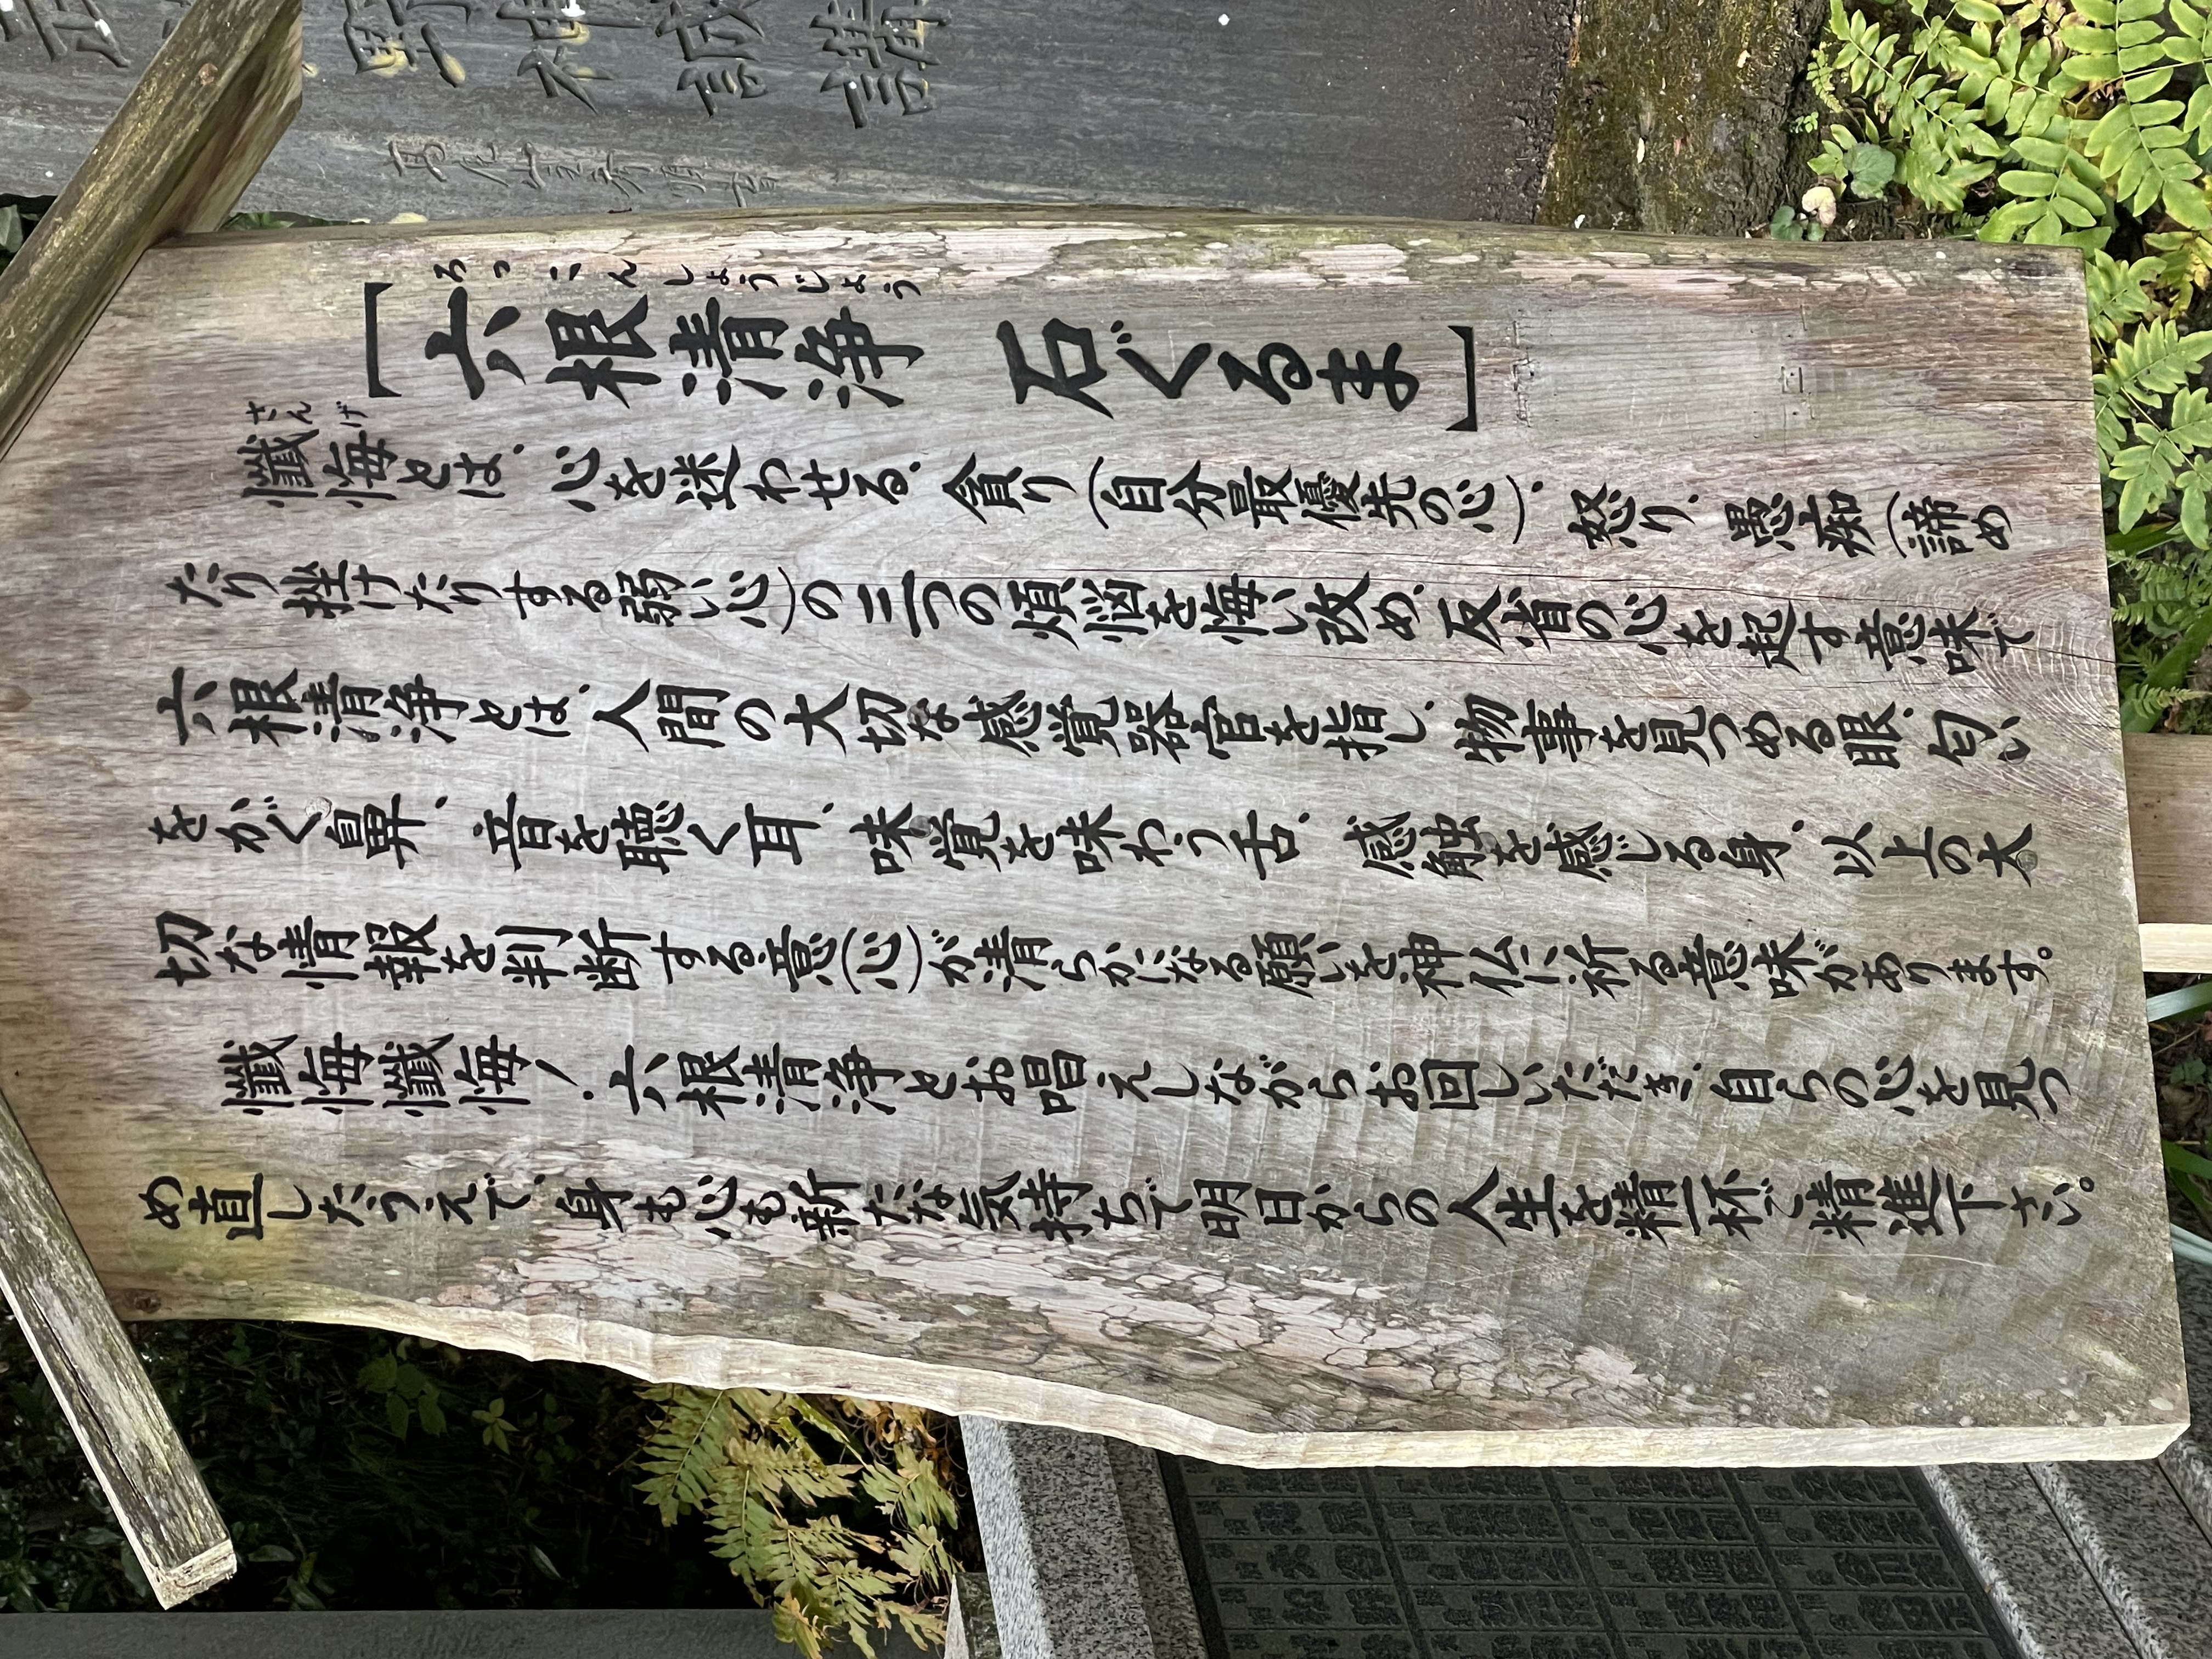 ろっこんしょうじょう
［六根清浄　石ぐるま］
さんげ
懺悔とは、心を迷わせる、貪り(自分最優先の心)、怒り、愚痴(諦め
たり挫けたりする弱い心)の三つの煩悩を悔い改め、反省の心を起す意味で
六根清浄とは、人間の大切な感覚器官を指し、物事を見つめる眼、匂い
をかぐ鼻、音を聴く耳、味覚を味わう舌、感触を感じる身、以上の大
切な情報を判断する意(心)が清らかになる願いを神仏に祈る意味があります。
懺悔懺悔！六根清浄とお唱えしながらお回しいただき、自らの心を見つ
め直したうえで、身も心も新たな気持ちで明日からの人生を精一杯ご精進下さい。